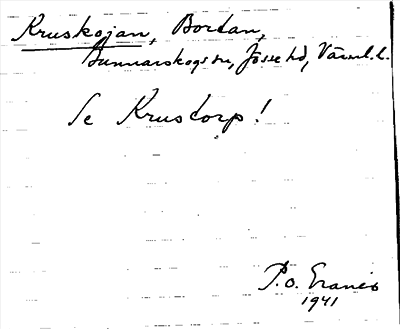 Kruskojan, Bortan,
Gunnarskogs sn, Jösse hd, Värml. l.
Se Krustorp!
P.O. Granér
1941